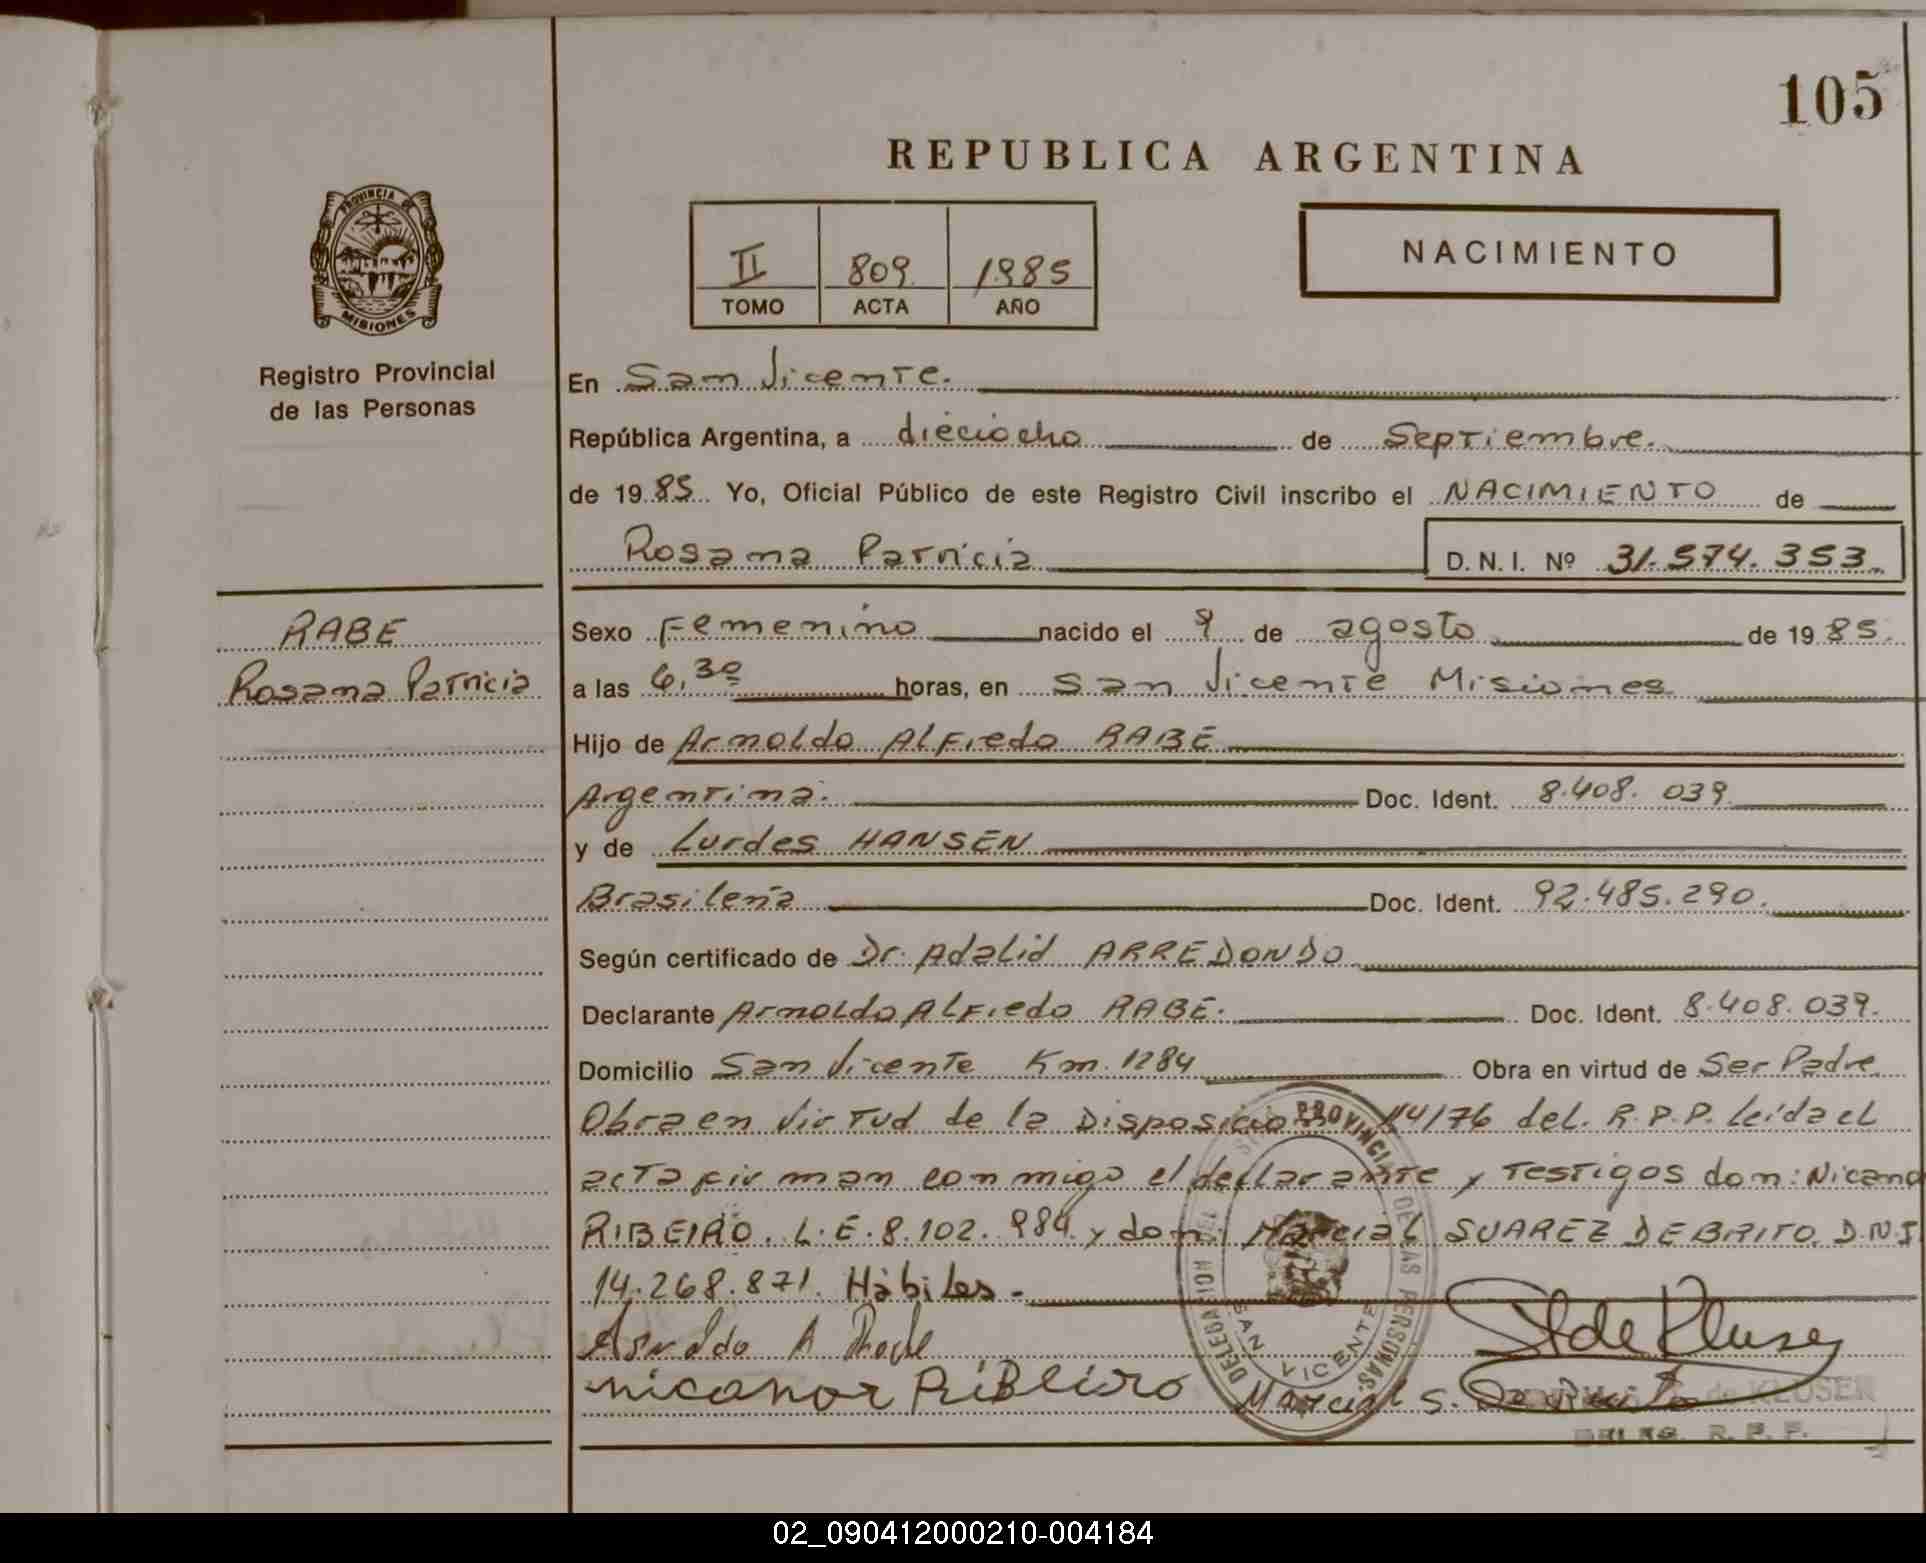 105
REPUBLICA ARGENTINA
PROVINCIA DE
MISIONES
Registro Provincial
de las Personas
II 809 1985
TOMO ACTA AÑO
NACIMIENTO
En San Vicente.
República Argentina, a dieciocho de Septiembre.
de 1985 Yo, Oficial Público de este Registro Civil inscribo el NACIMIENTO de
Rosana Patricia D.N.I. Nº 31.574.353.
RABE
Rosana Patricia
Sexo Femenino nacido el 9 de agosto de 1985.
a las 6,30 horas, en San Vicente Misiones
Hijo de Arnoldo Alfredo RABE
Argentina. Doc. Ident. 8.408.039
y de Lurdes HANSEN
Brasileña Doc. Ident. 92.485.290.
Según certificado de Dr. Adalid ARREDONDO
Declarante Arnoldo Alfredo RABE. Doc. Ident. 8.408.039.
Domicilio San Vicente Km. 1284 Obra en virtud de Ser Padre
Obra en virtud de la Disposicion 114/76 del. R.P.P. leída el
acta firman conmigo el declarante y testigos don: Nicano
RIBEIRO. L.E. 8.102.984 y don: Marcial SUAREZ DE BRITO. D.N.I
14.268.871. Hàbiles.-
Arnoldo A Rabe
nicanor RiBeiro Marcial S. De Brito
DELEGACION DEL PROVINCIAL DE LAS PERSONAS
SAN VICENTE
de KLUSER
DELEG. R. P. P.
02_090412000210-004184